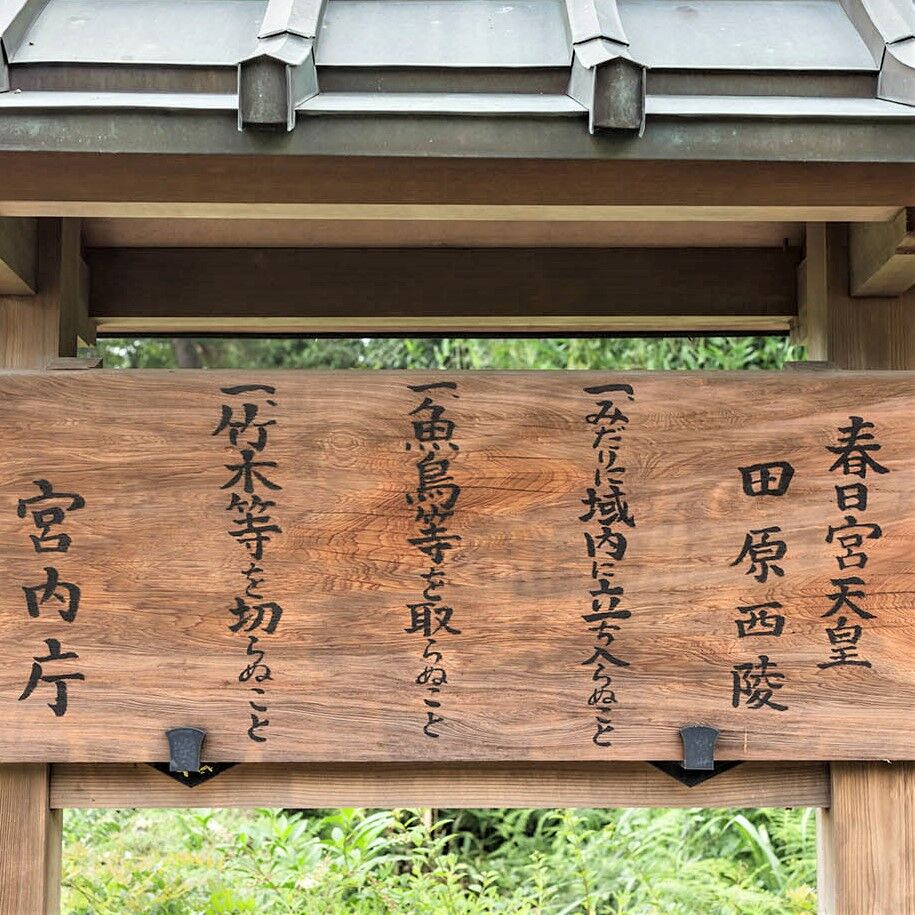 春日宮天皇
田原西陵
一、みだりに域内に立ち入らぬこと
一、魚鳥等を取らぬこと
一、竹木等を切らぬこと
宮内庁